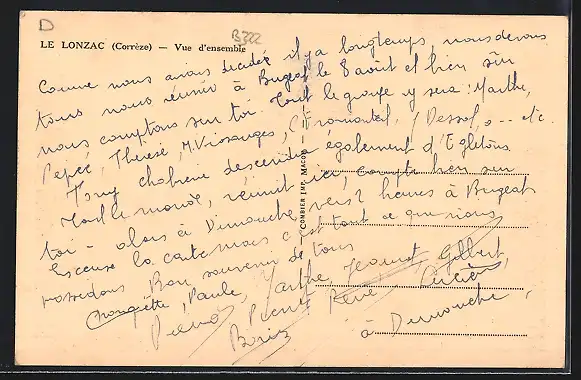 D
B722
LE LONZAC (Corrèze) — Vue d'ensemble
Comme nous avions décidé il y a longtemps, nous devons
tous nous réunir à Bugeat le 8 août et bien sûr
nous comptons sur toi. Tout le groupe y sera : Marthe,
Pépée, Thérèse, M. Viossanges, ... etc.
Tony Chabrerie descendra également d'Egletons
Tout le monde, réunit ici, compte bien sur
toi - alors à Dimanche vers 2 heures à Bugeat
Excuse la carte mais c'est tout ce que nous
possédons Bon souvenir de tous
Paule, Marthe, Jeannot, Gilbert,
Pierrot Pierre René Lucien
Boris à Dimanche,
COMBIER IMP. MACON